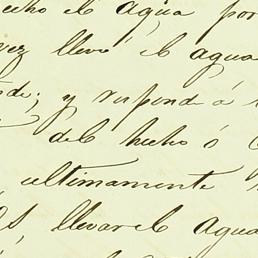 hecho el agua por
vez llevé el agua
de; y respondo á
del hecho ó
ultimamente
llevar el agua